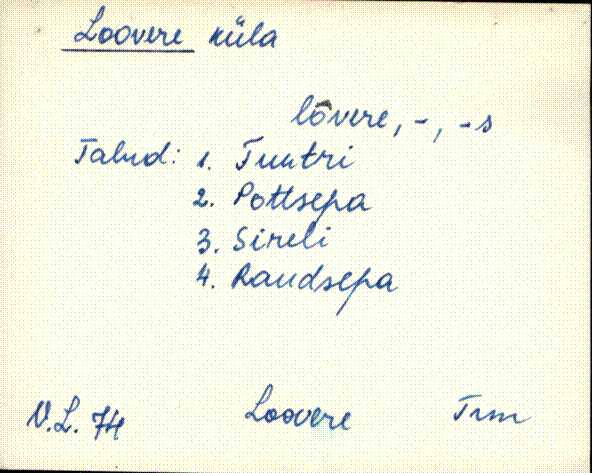 Loovere küla
lōvere, -, -s
Talud: 1. Tuutri
2. Pottsepa
3. Sireli
4. Raudsepa
V.L. 74 Loovere Trm